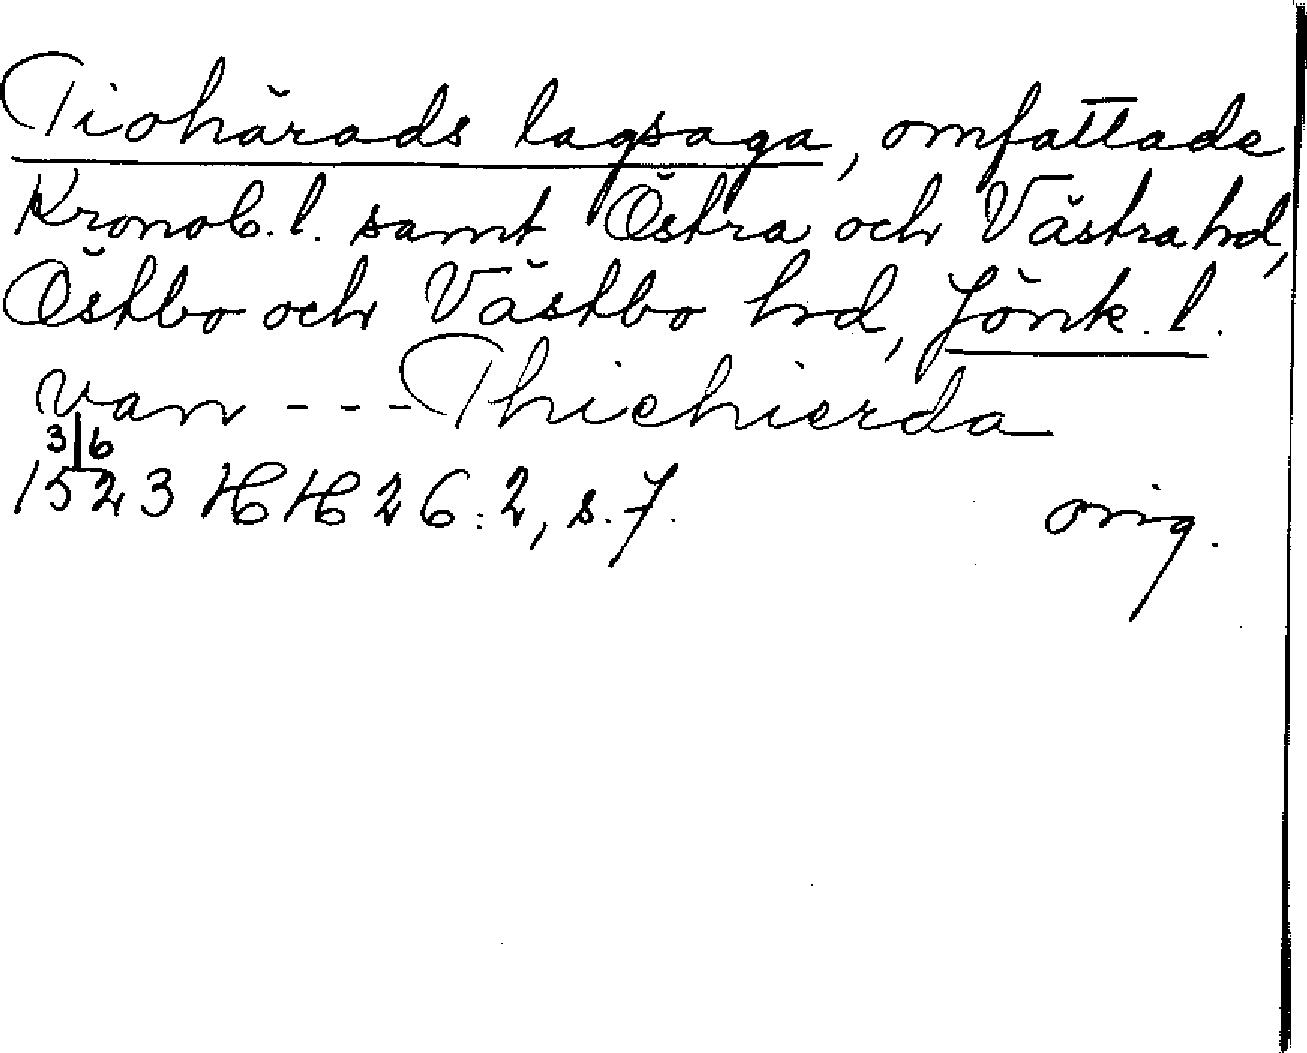 Tiohärads lagsaga, omfattade
Kronob. l. samt Östra och Västra hd,
Östbo och Västbo hd, Jönk. l.
van - - - Thiehierda
3/6
1523 HH 26:2, s. 7. orig.